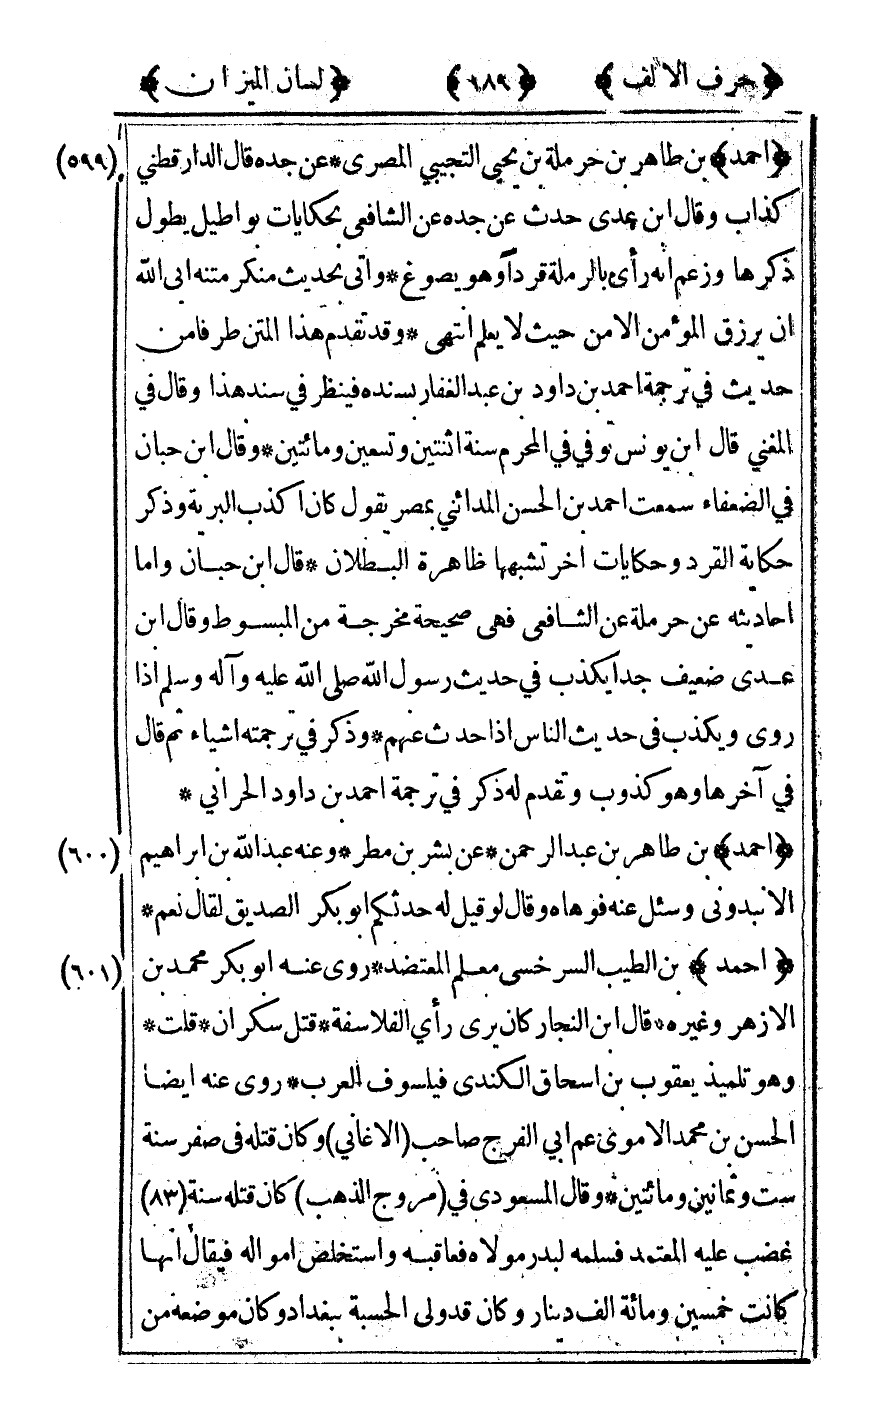 ﴿ حرف الالف ﴾ ﴿ ١٨٩ ﴾ ﴿ لسان الميزان ﴾
﴿ احمد ﴾ بن طاهر بن حرملة بن يحيى التجيبي المصرى * عن جده قال الدارقطني (٥٩٩)
كذاب وقال ابن عدى حدث عن جده عن الشافعي بحكايات بواطيل يطول
ذكرها وزعم انه رأى بالرملة قرداً وهو يصوغ * واتى بحديث منكر متنه ابى الله
ان يرزق المؤمن الا من حيث لا يعلم انتهى * وقد تقدم هذا المتن طرفا من
حديث في ترجمة احمد بن داود بن عبد الغفار بسنده فينظر في سند هذا وقال في
المغني قال ابن يونس توفي في المحرم سنة اثنتين وتسعين ومائتين * وقال ابن حبان
في الضعفاء سمعت احمد بن الحسن المدائني بمصر يقول كان اكذب البرية وذكر
حكاية القرد وحكايات اخر تشبهها ظاهرة البطلان * قال ابن حبان واما
احاديثه عن حرملة عن الشافعى فهى صحيحة مخرجة من المبسوط وقال ابن
عدى ضعيف جدا يكذب في حديث رسول الله صلى الله عليه وآله وسلم اذا
روى ويكذب فى حديث الناس اذا حدث عنهم * وذكر في ترجمته اشياء ثم قال
في آخرها وهو كذوب وتقدم له ذكر في ترجمة احمد بن داود الحراني *
﴿ احمد ﴾ بن طاهر بن عبد الرحمن * عن بشر بن مطر * وعنه عبد الله بن ابراهيم (٦٠٠)
الابندونى وسئل عنه فوهاه وقال لو قيل له حدثكم ابو بكر الصديق لقال نعم *
﴿ احمد ﴾ بن الطيب السرخسى معلم المعتضد * روى عنه ابو بكر محمد بن (٦٠١)
الازهر وغيره * قال ابن النجار كان يرى رأي الفلاسفة * قتل سكران * قلت *
وهو تلميذ يعقوب بن اسحاق الكندى فيلسوف العرب * روى عنه ايضا
الحسن بن محمد الاموى عم ابي الفرج صاحب (الاغاني) وكان قتله فى صفر سنة
ست وثمانين ومائتين * وقال المسعودى في (مروج الذهب) كان قتله سنة (٨٣)
غضب عليه المعتمد فسلمه لبدر مولاه فعاقبه واستخلص امواله فيقال انها
كانت خمسين ومائة الف دينار وكان قد ولى الحسبة ببغداد وكان موضعه من